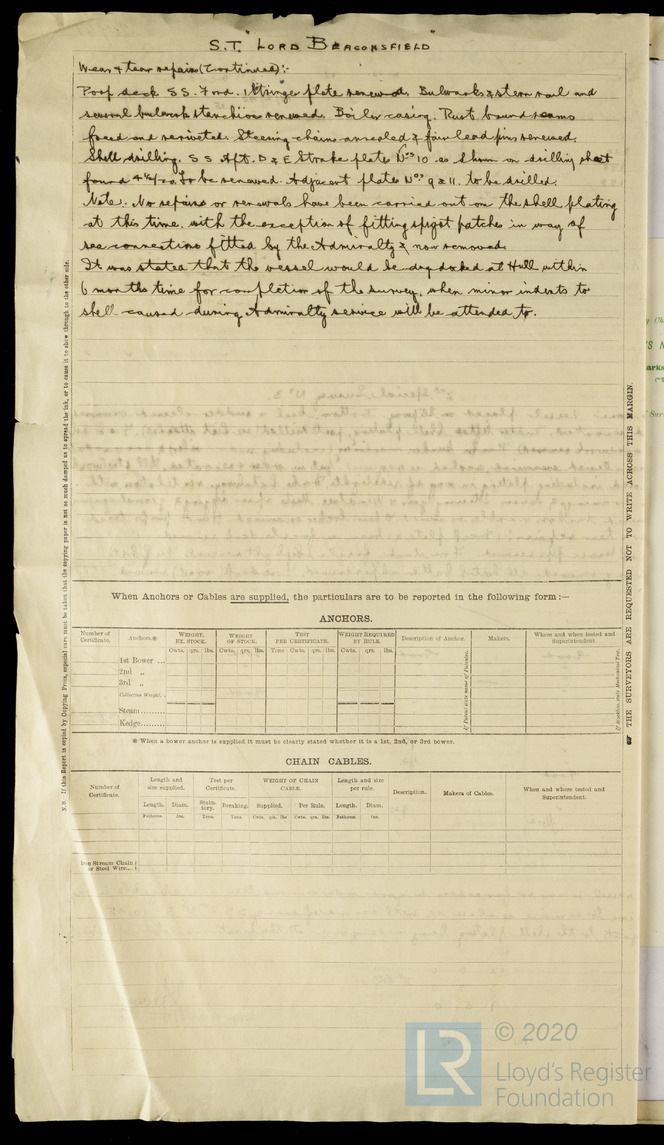 S.T. "LORD BEACONSFIELD"
Wear & tear repairs (Continued):-
Poop deck S.S. Ford. 1 Stringer plate renewed. Bulwarks & stern rail and
several bulwark stanchions renewed. Boiler casing. Rust bound seams
faced and reriveted. Steering chains annealed & fair lead pins renewed.
Shell drilling. S S Aft. D & E Strake plates Nos 10 as shown on drilling sheet
found to be renewed. Adjacent plates Nos 9 & 11. to be drilled.
Note. No repairs or renewals have been carried out on the shell plating
at this time. with the exception of fitting spigot patches in way of
sea connections fitted by the Admiralty & now removed.
It was stated that the vessel would be dry docked at Hull within
6 months time for completion of the survey, when minor indents to
shell caused during Admiralty service will be attended to.
N.B. If this Report is copied by Copying Press, especial care must be taken that the copying paper is not so much damped as to spread the ink, or to cause it to show through to the other side.
THE SURVEYORS ARE REQUESTED NOT TO WRITE ACROSS THIS MARGIN.
When Anchors or Cables are supplied, the particulars are to be reported in the following form :—
ANCHORS.
Number of Certificate.
Anchors.*
WEIGHT. EX. STOCK.
WEIGHT OF STOCK.
TEST PER CERTIFICATE.
WEIGHT REQUIRED BY RULE.
Description of Anchor.
Makers.
Where and when tested and Superintendent.
Cwts. qrs. lbs.
Cwts. qrs. lbs.
Tons Cwts. qrs. lbs.
Cwts. qrs. lbs.
1st Bower ...
2nd „
3rd „
Collective Weight.
Stream
Kedge
* When a bower anchor is supplied it must be clearly stated whether it is a 1st, 2nd, or 3rd bower.
CHAIN CABLES.
Number of Certificate.
Length and size supplied.
Test per Certificate.
WEIGHT OF CHAIN CABLE.
Length and size per rule.
Description.
Makers of Cables.
When and where tested and Superintendent.
Length. Diam. Statutory. Breaking. Supplied. Per Rule. Length. Diam.
Fathoms. Ins. Tons. Tons. Cwts. qrs. lbs. Cwts. qrs. lbs. Fathoms. Ins.
Iron Stream Chain
or Steel Wire
© 2020
LR
Lloyd's Register
Foundation